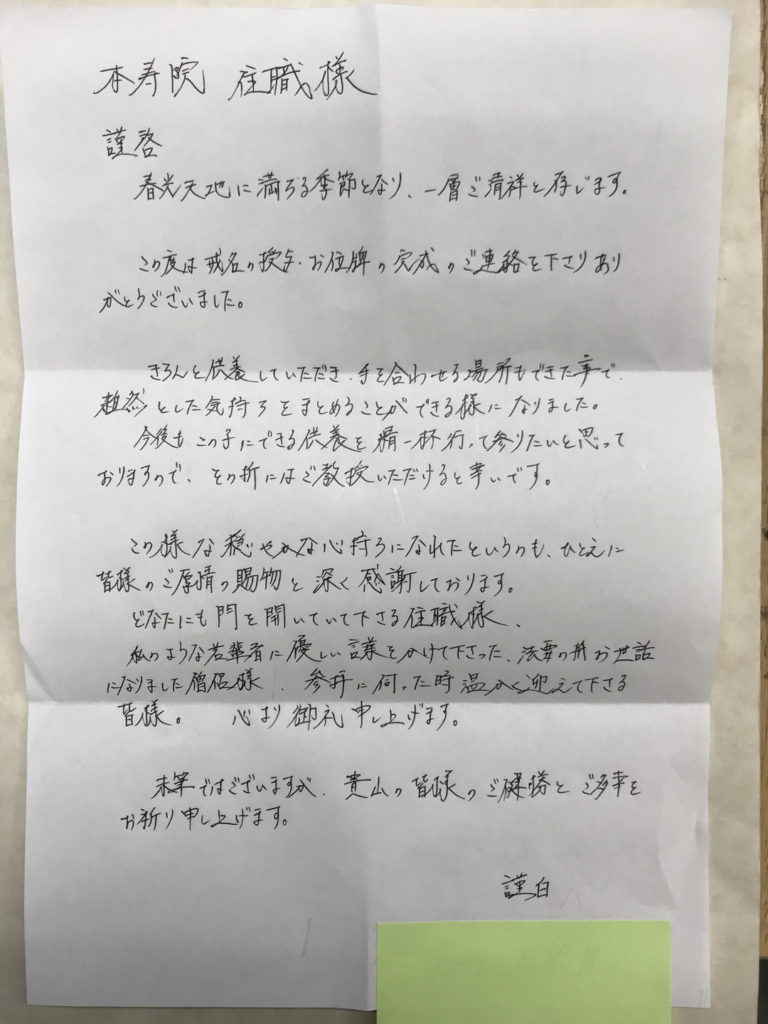 本寿院 住職様
謹啓
春光天地に満ちる季節となり、一層ご清祥と存じます。
この度は戒名の授与・お位牌の完成のご連絡を下さりあり
がとうございました。
きちんと供養していただき、手を合わせる場所もできた事で、
とした気持ちをまとめることができる様になりました。
今後もこの子にできる供養を精一杯行って参りたいと思って
おりますので、その折にはご教授いただけると幸いです。
この様な穏やかな心持ちになれたというのも、ひとえに
皆様のご厚情の賜物と深く感謝しております。
どなたにも門を開いていて下さる住職様、
私のような若輩者に優しい言葉をかけて下さった、法要の折お世話
になりました僧侶様、参拝に伺った時温かく迎えて下さる
皆様。 心より御礼申し上げます。
末筆ではございますが、貴山の皆様のご健勝とご多幸を
お祈り申し上げます。
謹白